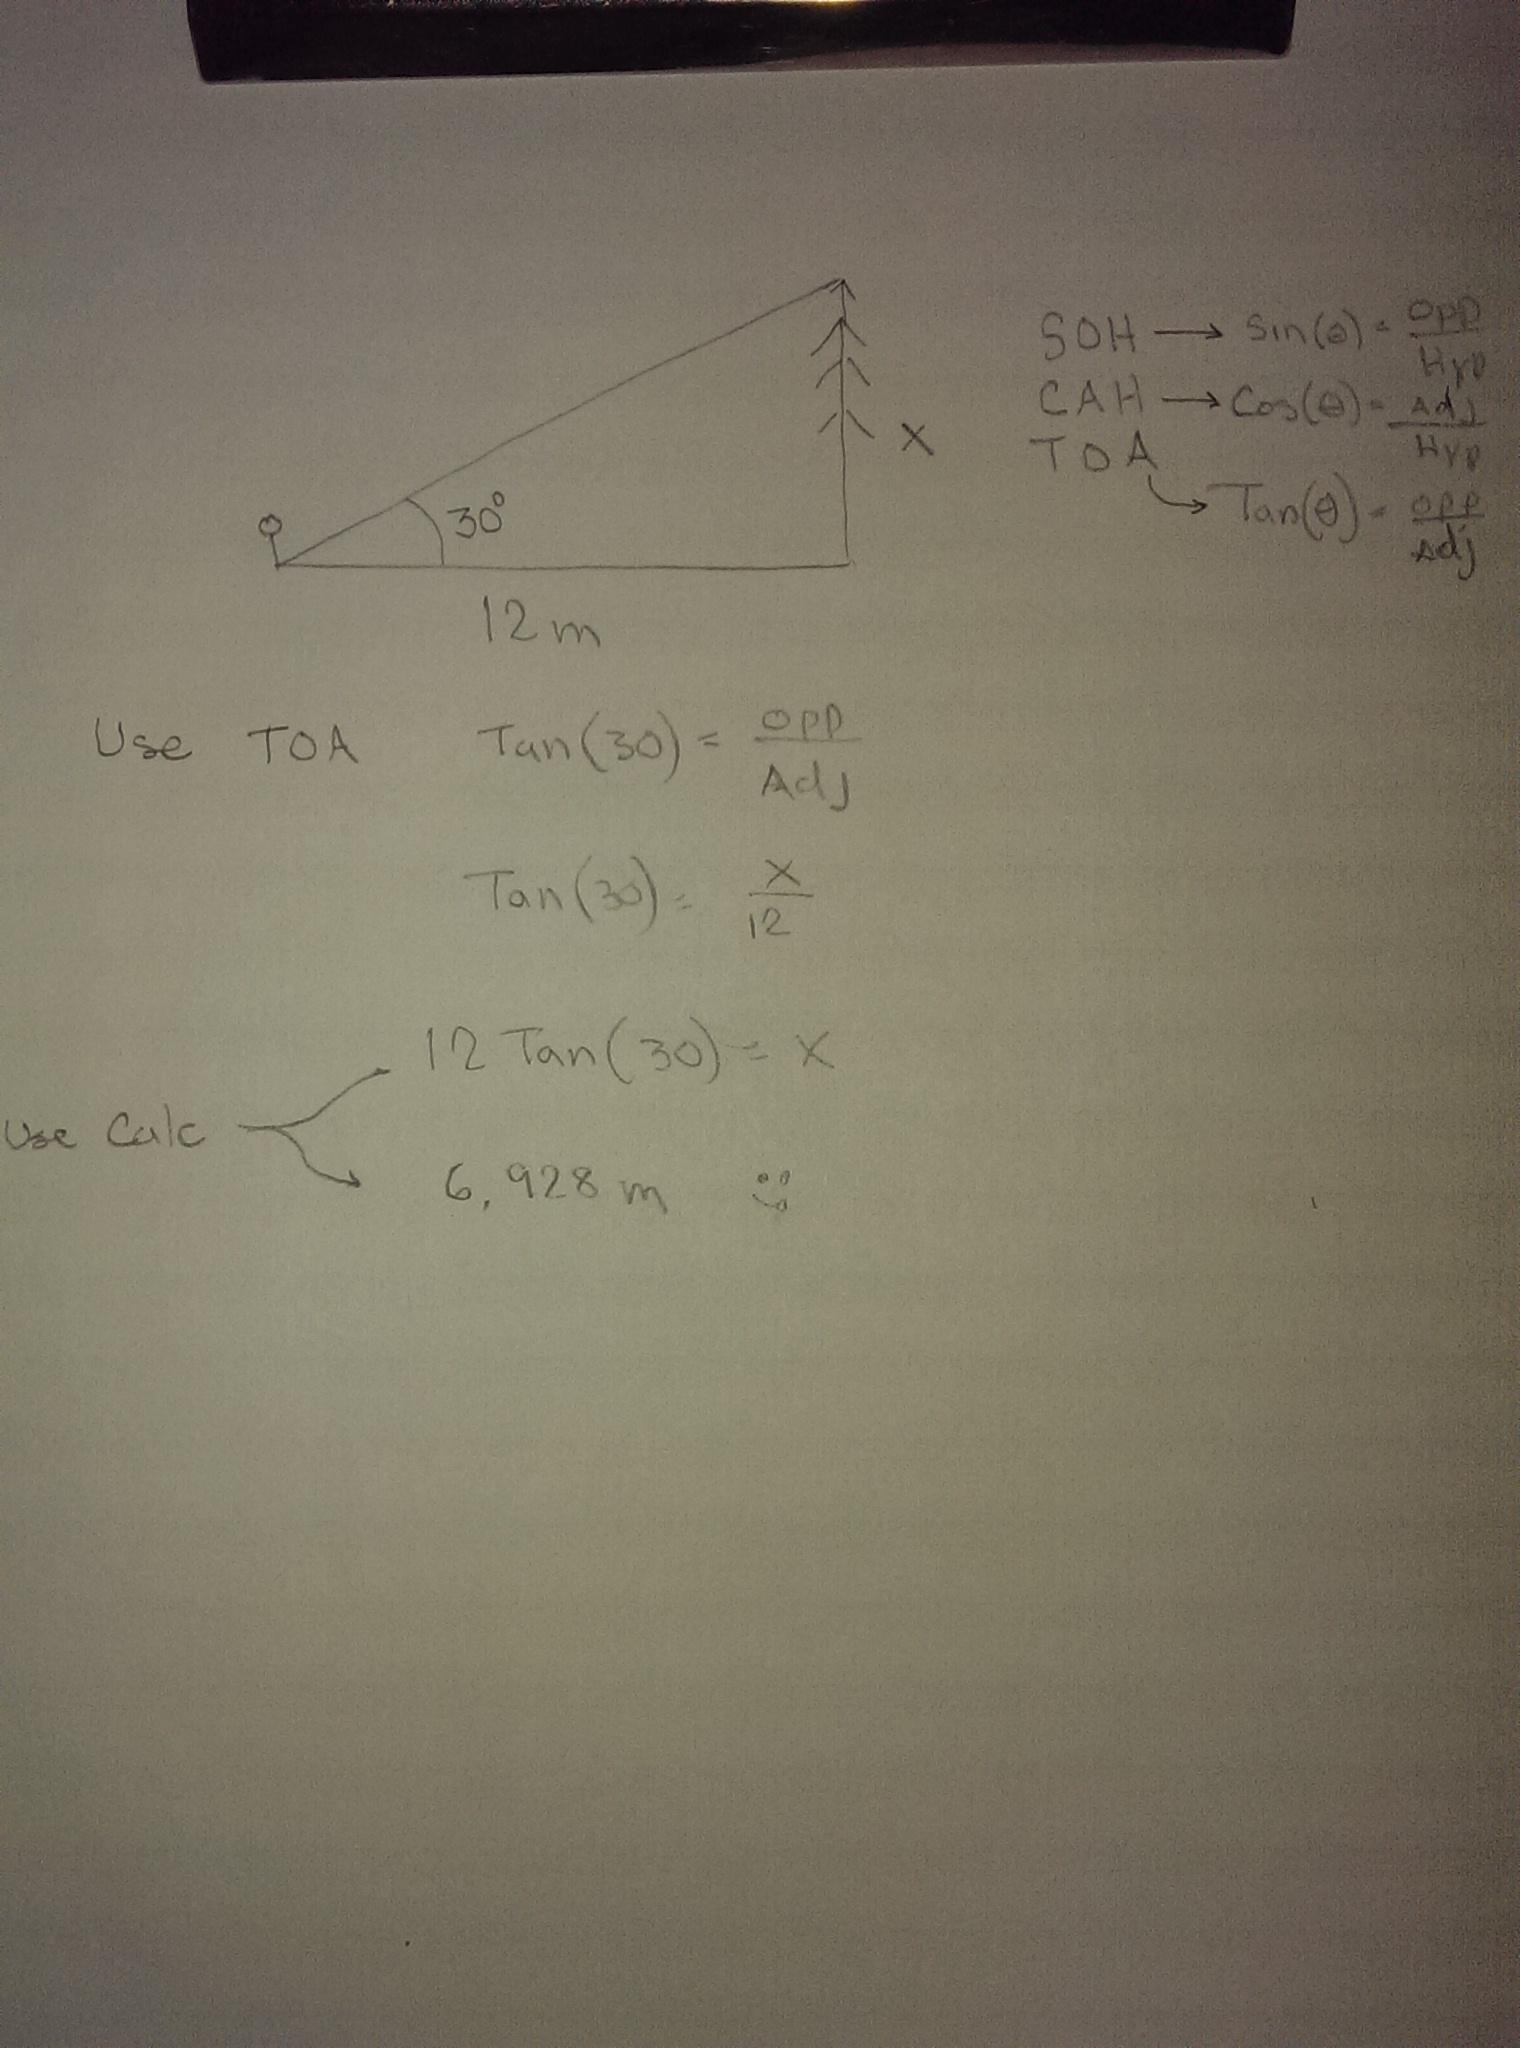 SOH → Sin(θ) = Opp/Hyp
CAH → Cos(θ) = Adj/Hyp
TOA
→ Tan(θ) = opp/Adj
x
30°
12 m
Use TOA Tan(30) = opp/Adj
Tan(30) = x/12
12 Tan(30) = x
Use Calc
6,928 m